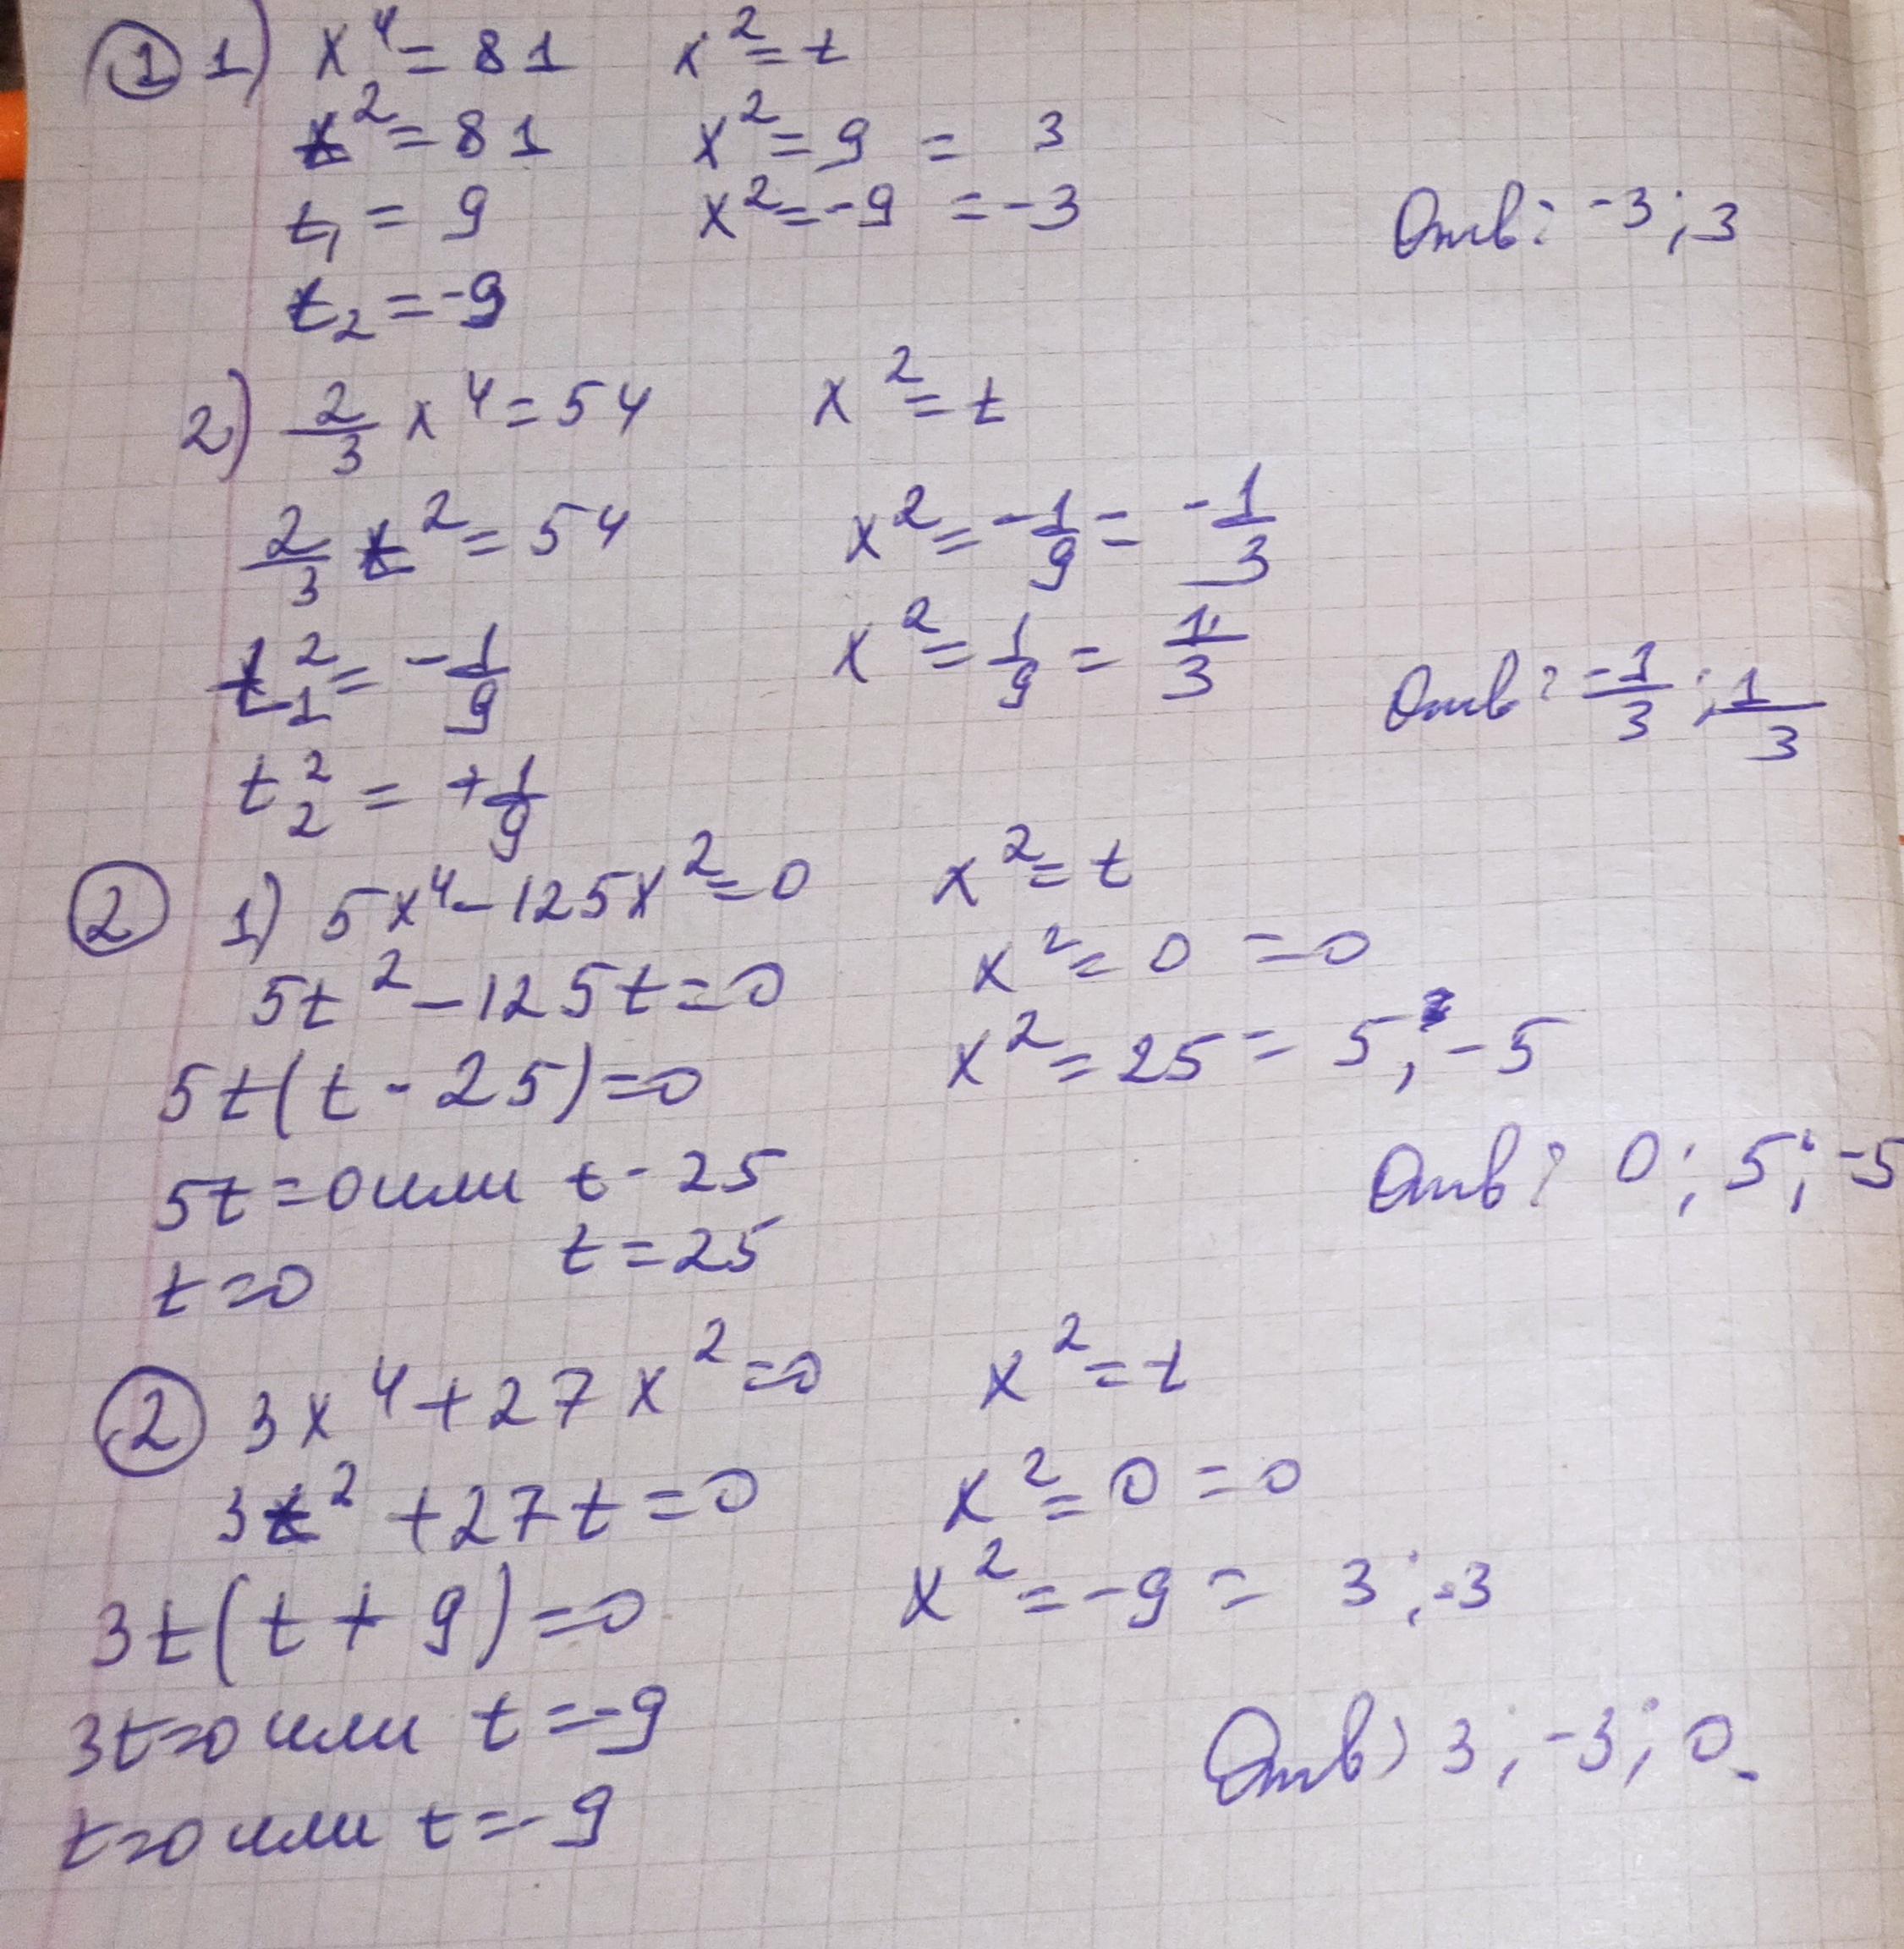 ① 1) x⁴ = 81 x² = t
t² = 81 x² = 9 = 3
t₁ = 9 x² = -9 = -3
Отв: -3; 3
t₂ = -9
2) 2/3 x⁴ = 54 x² = t
2/3 t² = 54 x² = -1/9 = -1/3
t₁² = -1/9 x² = 1/9 = 1/3
Отв: -1/3; 1/3
t₂² = +1/9
② 1) 5x⁴ - 125x² = 0 x² = t
5t² - 125t = 0 x² = 0 = 0
5t(t - 25) = 0 x² = 25 = 5, -5
5t = 0 или t - 25
Отв: 0; 5; -5
t = 0 t = 25
② 3x⁴ + 27x² = 0 x² = t
3t² + 27t = 0 x² = 0 = 0
3t(t + 9) = 0 x² = -9 = 3; -3
3t = 0 или t = -9
Отв) 3; -3; 0.
t = 0 или t = -9